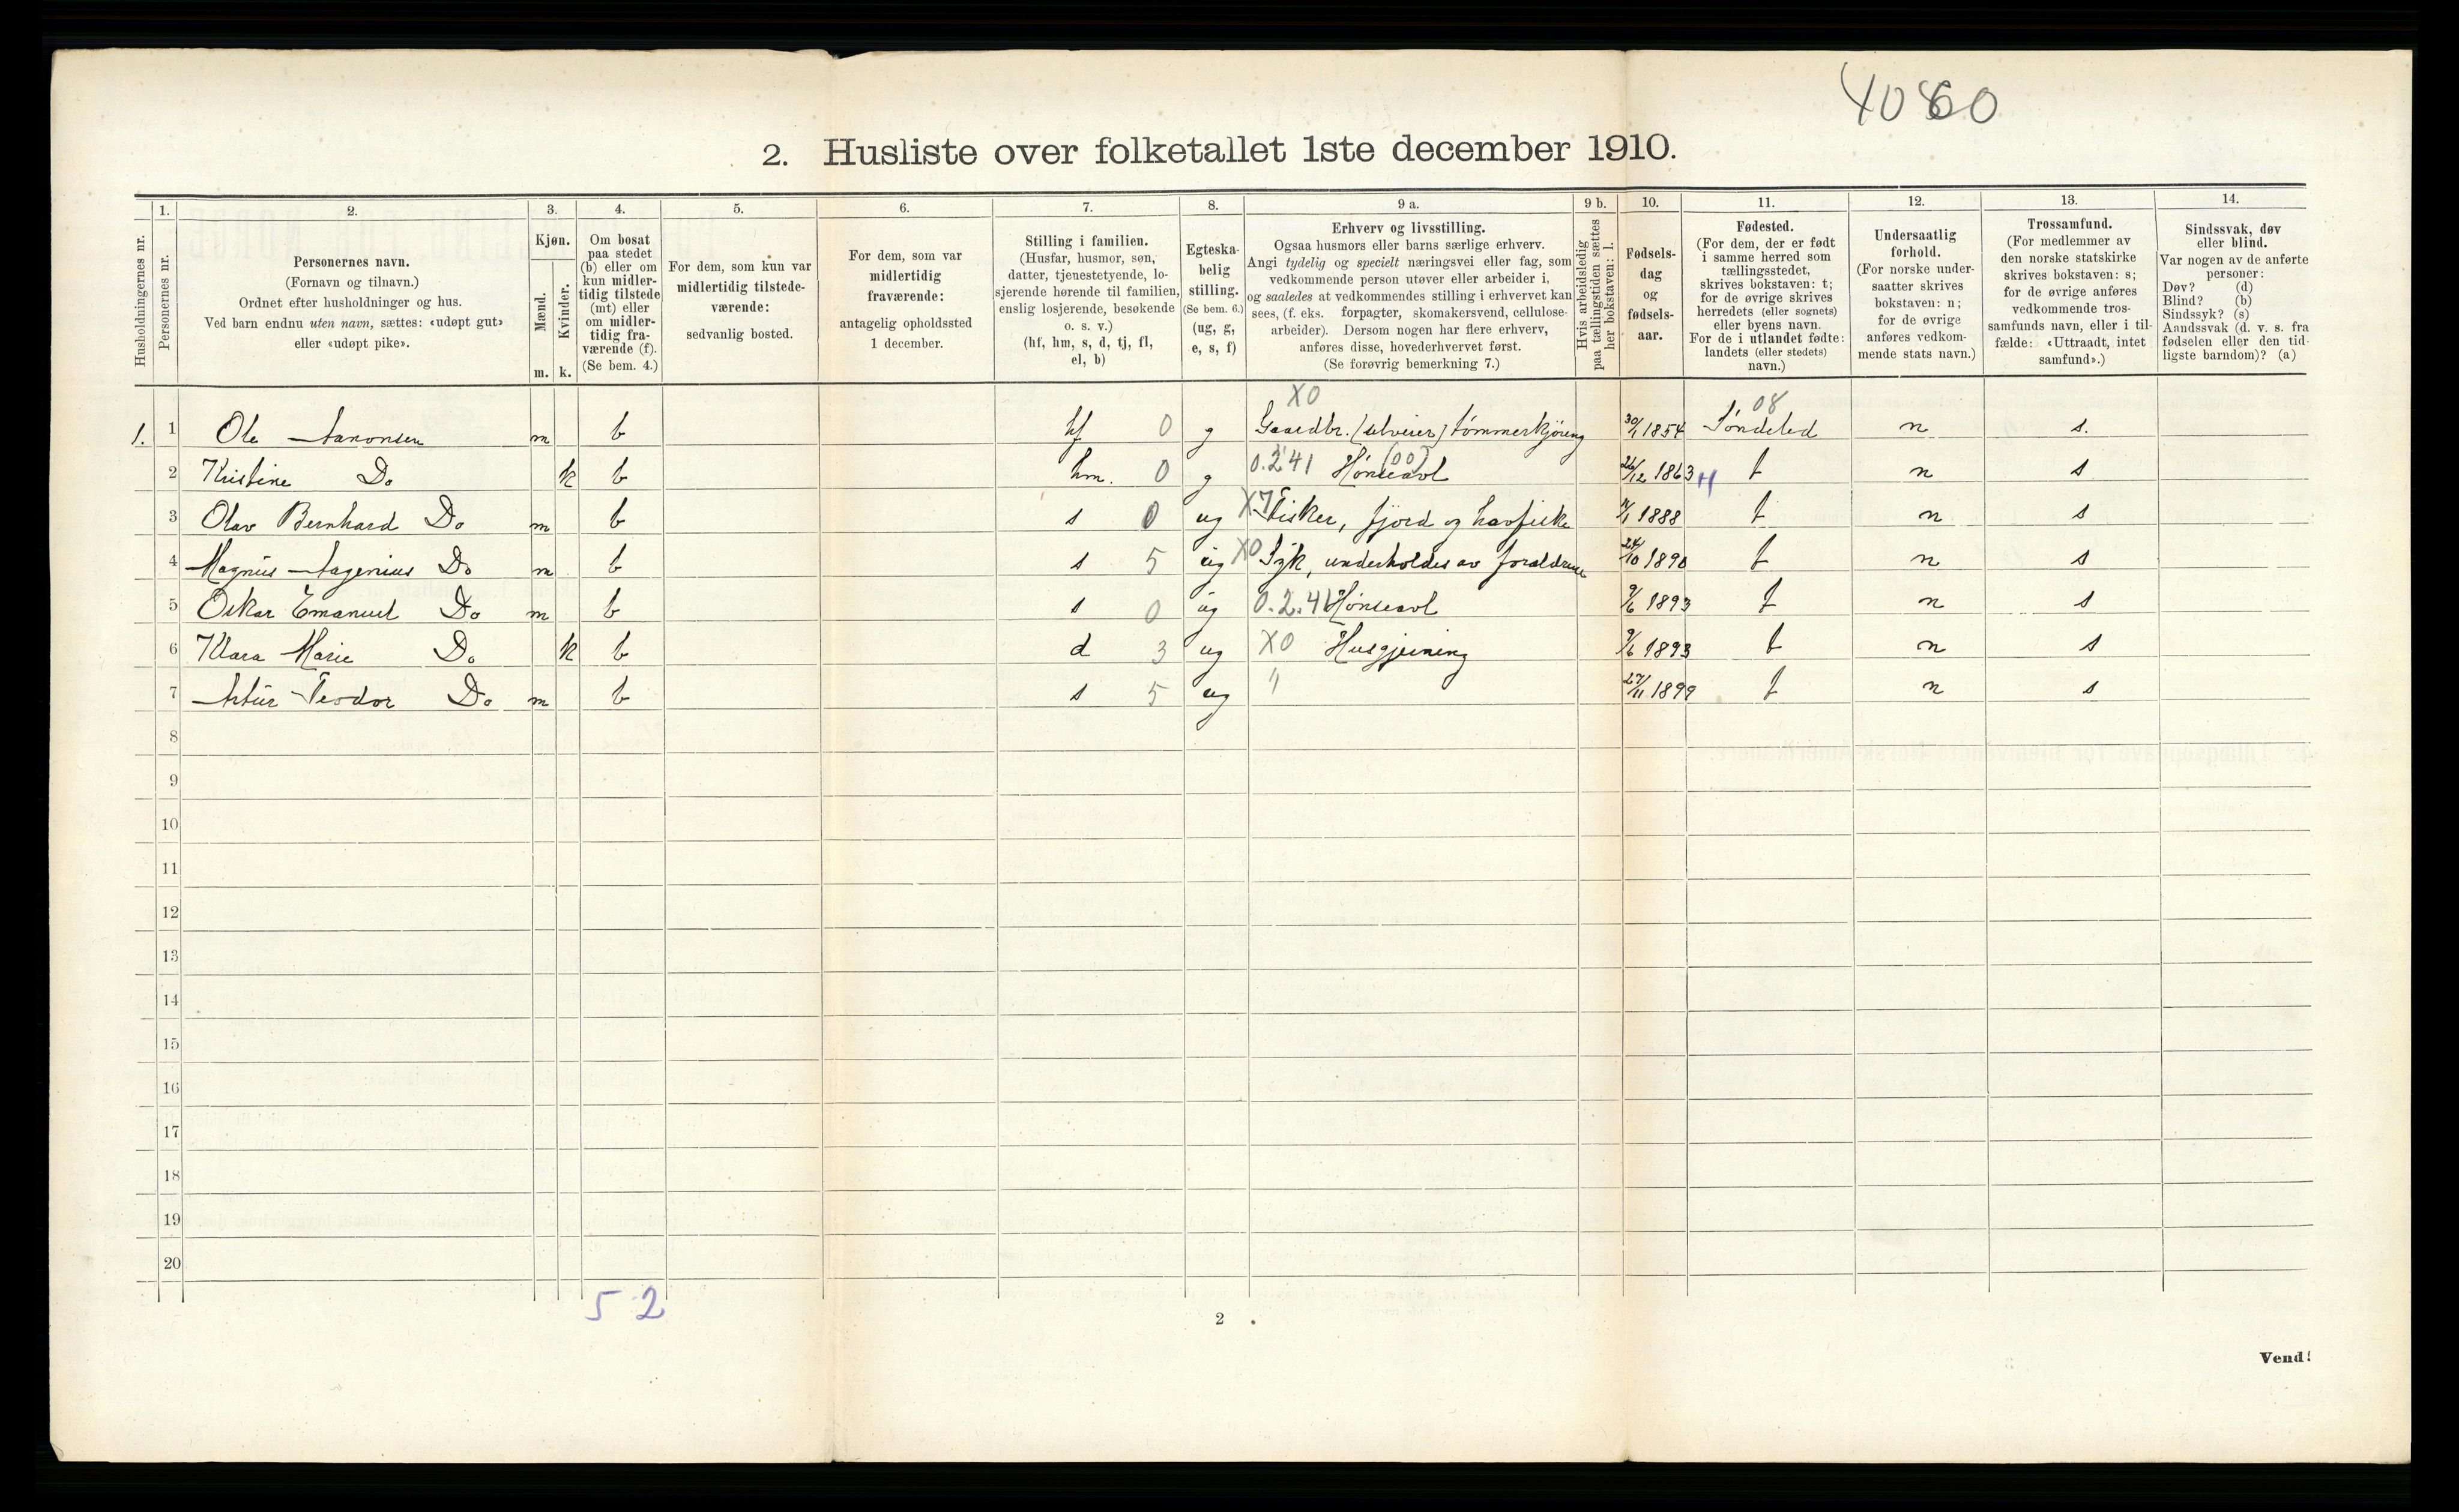 4080
2. Husliste over folketallet 1ste december 1910.
Husholdningernes nr.
1.
Personernes nr.
2.
Personernes navn.
(Fornavn og tilnavn.)
Ordnet efter husholdninger og hus.
Ved barn endnu uten navn, sættes: «udøpt gut»
eller «udøpt pike».
3.
Kjøn.
Mænd.
Kvinder.
m. k.
4.
Om bosat
paa stedet
(b) eller om
kun midler-
tidig tilstede
(mt) eller
om midler-
tidig fra-
værende (f).
(Se bem. 4.)
5.
For dem, som kun var
midlertidig tilstede-
værende:
sedvanlig bosted.
6.
For dem, som var
midlertidig
fraværende:
antagelig opholdssted
1 december.
7.
Stilling i familien.
(Husfar, husmor, søn,
datter, tjenestetyende, lo-
sjerende hørende til familien,
enslig losjerende, besøkende
o. s. v.)
(hf, hm, s, d, tj, fl,
el, b)
8.
Egteska-
belig
stilling.
(Se bem. 6.)
(ug, g,
e, s, f)
9 a.
Erhverv og livsstilling.
Ogsaa husmors eller barns særlige erhverv.
Angi tydelig og specielt næringsvei eller fag, som
vedkommende person utøver eller arbeider i,
og saaledes at vedkommendes stilling i erhvervet kan
sees, (f. eks. forpagter, skomakersvend, cellulose-
arbeider). Dersom nogen har flere erhverv,
anføres disse, hovederhvervet først.
(Se forøvrig bemerkning 7.)
9 b.
Hvis arbeidsledig
paa tællingstiden sættes
her bokstaven: l.
10.
Fødsels-
dag
og
fødsels-
aar.
11.
Fødested.
(For dem, der er født
i samme herred som
tællingsstedet,
skrives bokstaven: t;
for de øvrige skrives
herredets (eller sognets)
eller byens navn.
For de i utlandet fødte:
landets (eller stedets)
navn.)
12.
Undersaatlig
forhold.
(For norske under-
saatter skrives
bokstaven: n;
for de øvrige
anføres vedkom-
mende stats navn.)
13.
Trossamfund.
(For medlemmer av
den norske statskirke
skrives bokstaven: s;
for de øvrige anføres
vedkommende tros-
samfunds navn, eller i til-
fælde: «Uttraadt, intet
samfund».)
14.
Sindssvak, døv
eller blind.
Var nogen av de anførte
personer:
Døv? (d)
Blind? (b)
Sindssyk? (s)
Aandssvak (d. v. s. fra
fødselen eller den tid-
ligste barndom)? (a)
X0 08
1. 1 Ole Aanonsen m b hf 0 g Gaardbr. (selveier) tømmerkjøring 30/1 1854 Søndeled n s.
(00)
2 Kristine Do k b hm. 0 g 0.2.41 Hønseavl 26/12 1863 H t n s
3 Olav Bernhard Do m b s 0 ug X7 Fisker, fjord og havfiske 1888 t n s
4 Magnus Aagenius Do m b s 5 ug X0 Syk, underholdes av forældrene 24/10 1890 t n s
5 Oskar Emanuel Do m b s 0 ug 0.2.41 Hønseavl 9/6 1893 t n s
6 Klara Marie Do k b d 3 ug X0 Husgjerning 9/6 1893 t n s
7 Artur Teodor Do m b s 5 ug " 27/11 1899 t n s
8
9
10
11
12
13
14
15
16
17
18
19
20
5 2
2
Vend!